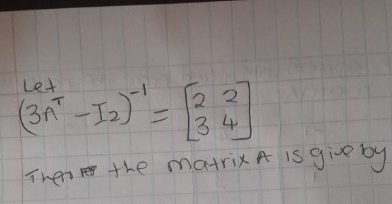 Let
(3Aᵀ - I₂)⁻¹ = [2 2
3 4]
Then the matrix A is give by